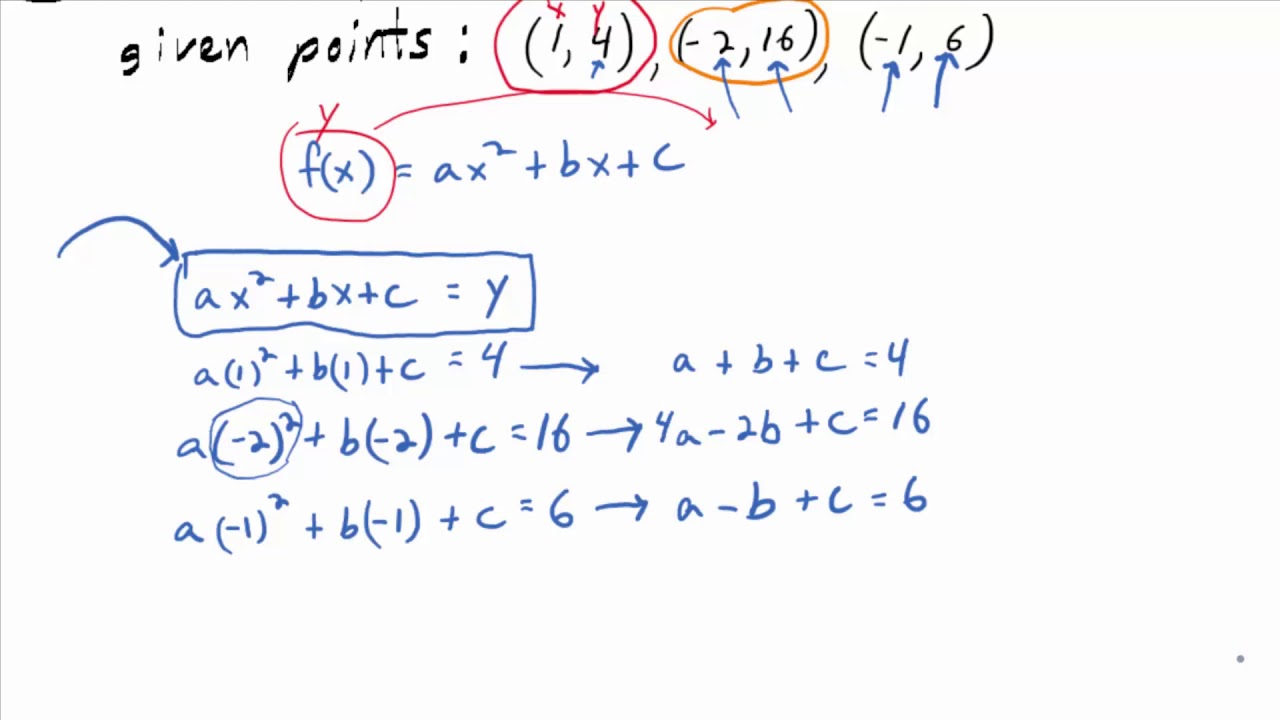 given points : (1, 4), (-2, 16), (-1, 6)
x y
y
f(x) = ax² + bx + c
ax² + bx + c = y
a(1)² + b(1) + c = 4 → a + b + c = 4
a(-2)² + b(-2) + c = 16 → 4a - 2b + c = 16
a(-1)² + b(-1) + c = 6 → a - b + c = 6